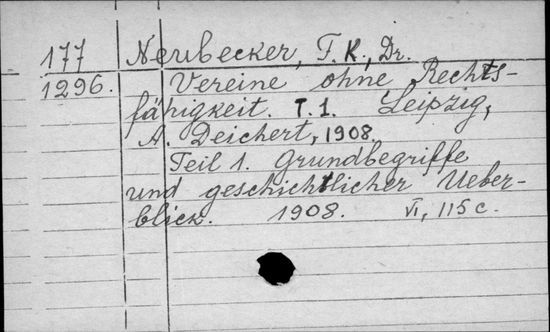 177 Neubecker, F. K., Dr.
1296. Vereine ohne Rechts-
fähigkeit. T. 1. Leipzig,
A. Deichert, 1908.
Teil 1. Grundbegriffe
und geschichtlicher Ueber-
blick. 1908. VI, 115 c.